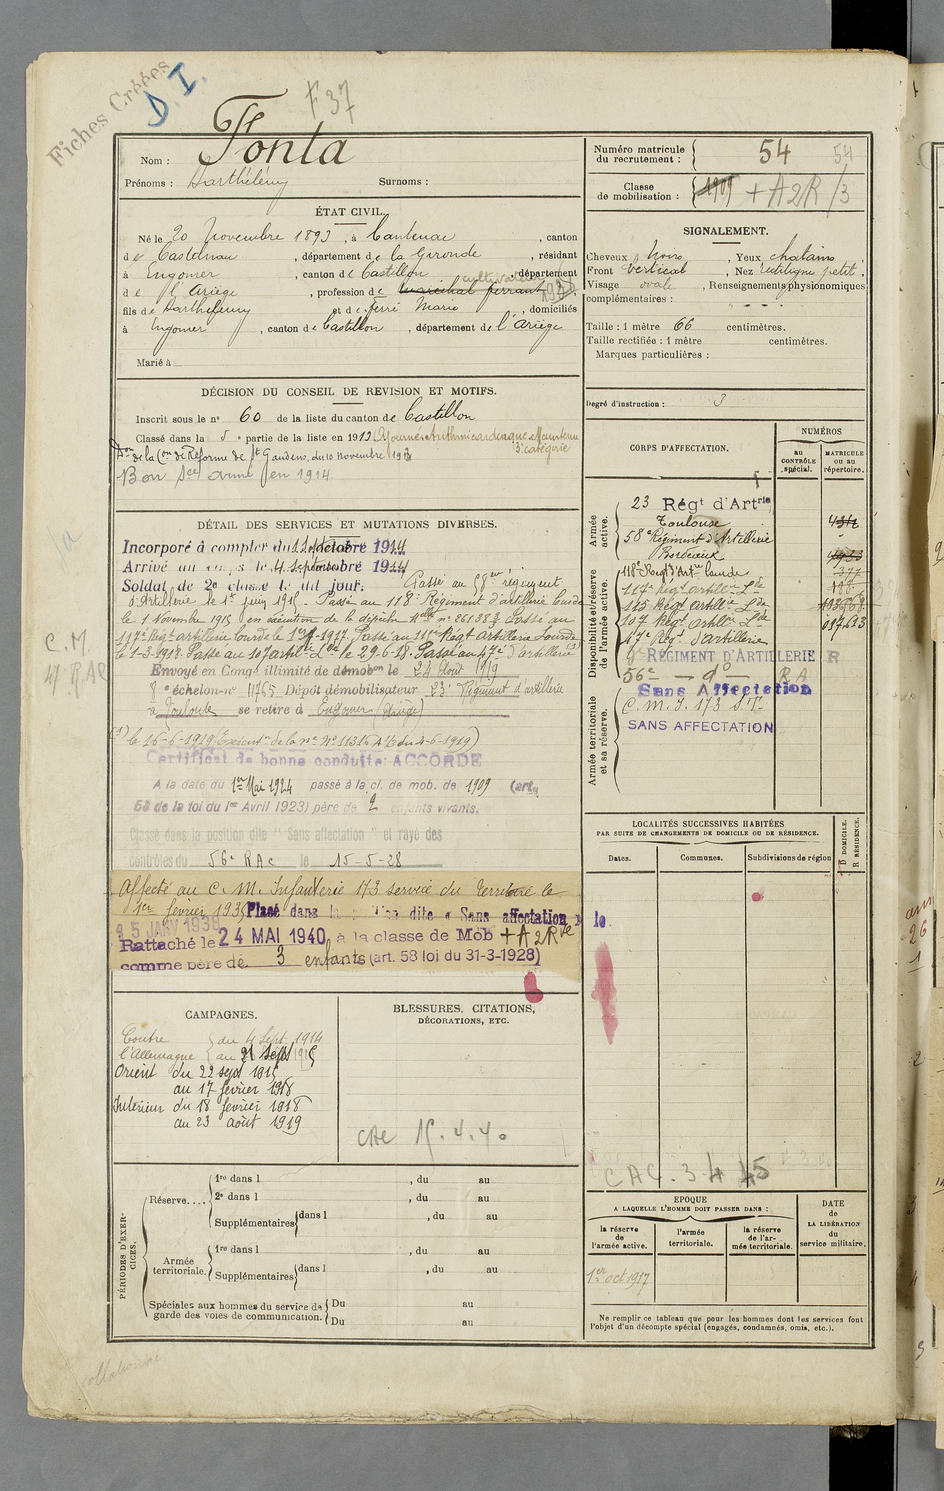 Fiches Créées
D.I.
F 37
Nom : Fonta
Prénoms : Barthélémy Surnoms :
Numéro matricule du recrutement : 54 54
Classe de mobilisation : 1909 + A2R /3
ÉTAT CIVIL.
Né le 20 Novembre 1893, à Cantenac, canton
de Castelnau, département de la Gironde, résidant
à Engomer, canton de Castillon, département
de l'Ariège, profession de maréchal ferrant cultivateur
fils de Barthélemy et de Ferré Marie, domiciliés
à Engomer, canton de Castillon, département de l'Ariège
Marié à
SIGNALEMENT.
Cheveux noirs, Yeux chatains
Front vertical, Nez rectiligne petit,
Visage ovale, Renseignements physionomiques
complémentaires :
Taille : 1 mètre 66 centimètres.
Taille rectifiée : 1 mètre centimètres.
Marques particulières :
Degré d'instruction : 3
DÉCISION DU CONSEIL DE REVISION ET MOTIFS.
Inscrit sous le n° 60 de la liste du canton de Castillon
Classé dans la 5e partie de la liste en 1913 Ajourné Arythmie cardiaque Maintenu
3e catégorie
Don de la Con de Réforme de St Gaudens, du 10 Novembre 191
Bon Sce armé en 1914.
CORPS D'AFFECTATION.
NUMÉROS
au CONTRÔLE spécial.
MATRICULE ou au répertoire.
Armée active.
23 Régt d'Artrie
Toulouse
58e Régiment d'Artillerie
Bordeaux
Disponibilité et réserve de l'armée active.
118e Regt d'Artie lourde
117e Régt artillie Lde
115 Régt artillie Lde
107 Régt artllie Lde
017633
47e Régt d'artillerie
RÉGIMENT D'ARTILLERIE R
56e — do — RA
Sans Affectation
Armée territoriale et sa réserve.
C.M.I. 173 S.T.
SANS AFFECTATION
DÉTAIL DES SERVICES ET MUTATIONS DIVERSES.
Incorporé à compter du 12 octobre 1914
Arrivé au corps le 4 septembre 1914
Soldat de 2e classe le dit jour. Passé au 58me régiment
d'Artillerie le 1er juin 1915. Passé au 118e Régiment d'artillerie lourde
le 1 Novembre 1915 en exécution de la dépêche Mlle n° 26138 3/3 Passé au
117e Régt artillerie lourde le 1er 1917. Passé au 115e Régt Artillerie Lourde
le 1-3-1918. Passé au 107 artie Lde le 29-6-18. Passé au 47e d'artillerie (1)
Envoyé en Congé illimité de démobon le 24 Août 1919
8e échelon-n° 11765 Dépôt démobilisateur 23e Régiment d'artillerie
à Toulouse se retire à Engomer (Ariège)
(1) le 16-6-1919 (Exécution de la No N° 11316 A/6 du 4-6-1919)
Certificat de bonne conduite: ACCORDÉ
A la date du 1er Mai 1924 passé à la cl. de mob. de 1909 (art.
58 de la loi du 1er Avril 1923) père de 2 enfants vivants.
Classé dans la position dite "Sans affectation" et rayé des
contrôles du 56e RAC le 15-5-28
Affecté au C.M. Infanterie 173 service du Territoire le
1er février 193
Placé dans la position dite « Sans affectation » le
15 JANV 193
Rattaché le 24 MAI 1940 à la classe de Mob + A2Re
comme père de 3 enfants (art. 58 loi du 31-3-1928)
C.M
LOCALITÉS SUCCESSIVES HABITÉES
PAR SUITE DE CHANGEMENTS DE DOMICILE OU DE RÉSIDENCE.
Dates.
Communes.
Subdivisions de région
D DOMICILE.
R RÉSIDENCE.
CAMPAGNES.
Contre l'Allemagne du 4 Sept. 1914
au 21 Sept 1915
Orient du 22 sept 1915
au 17 février 1918
Intérieur du 18 février 1918
au 23 août 1919
BLESSURES, CITATIONS,
DÉCORATIONS, ETC.
CAC 15.4.40
CAC. 3 4 45
PÉRIODES D'EXERCICES.
Réserve....
1re dans l , du au
2e dans l , du au
Supplémentaires dans l , du au
Armée territoriale.
1re dans l , du au
Supplémentaires dans l , du au
Spéciales aux hommes du service de garde des voies de communication.
Du au
Du au
EPOQUE
A LAQUELLE L'HOMME DOIT PASSER DANS :
la réserve de l'armée active.
l'armée territoriale.
la réserve de l'armée territoriale.
DATE de LA LIBÉRATION du service militaire.
1er oct 1917
Ne remplir ce tableau que pour les hommes dont les services font
l'objet d'un décompte spécial (engagés, condamnés, omis, etc.).
collationné